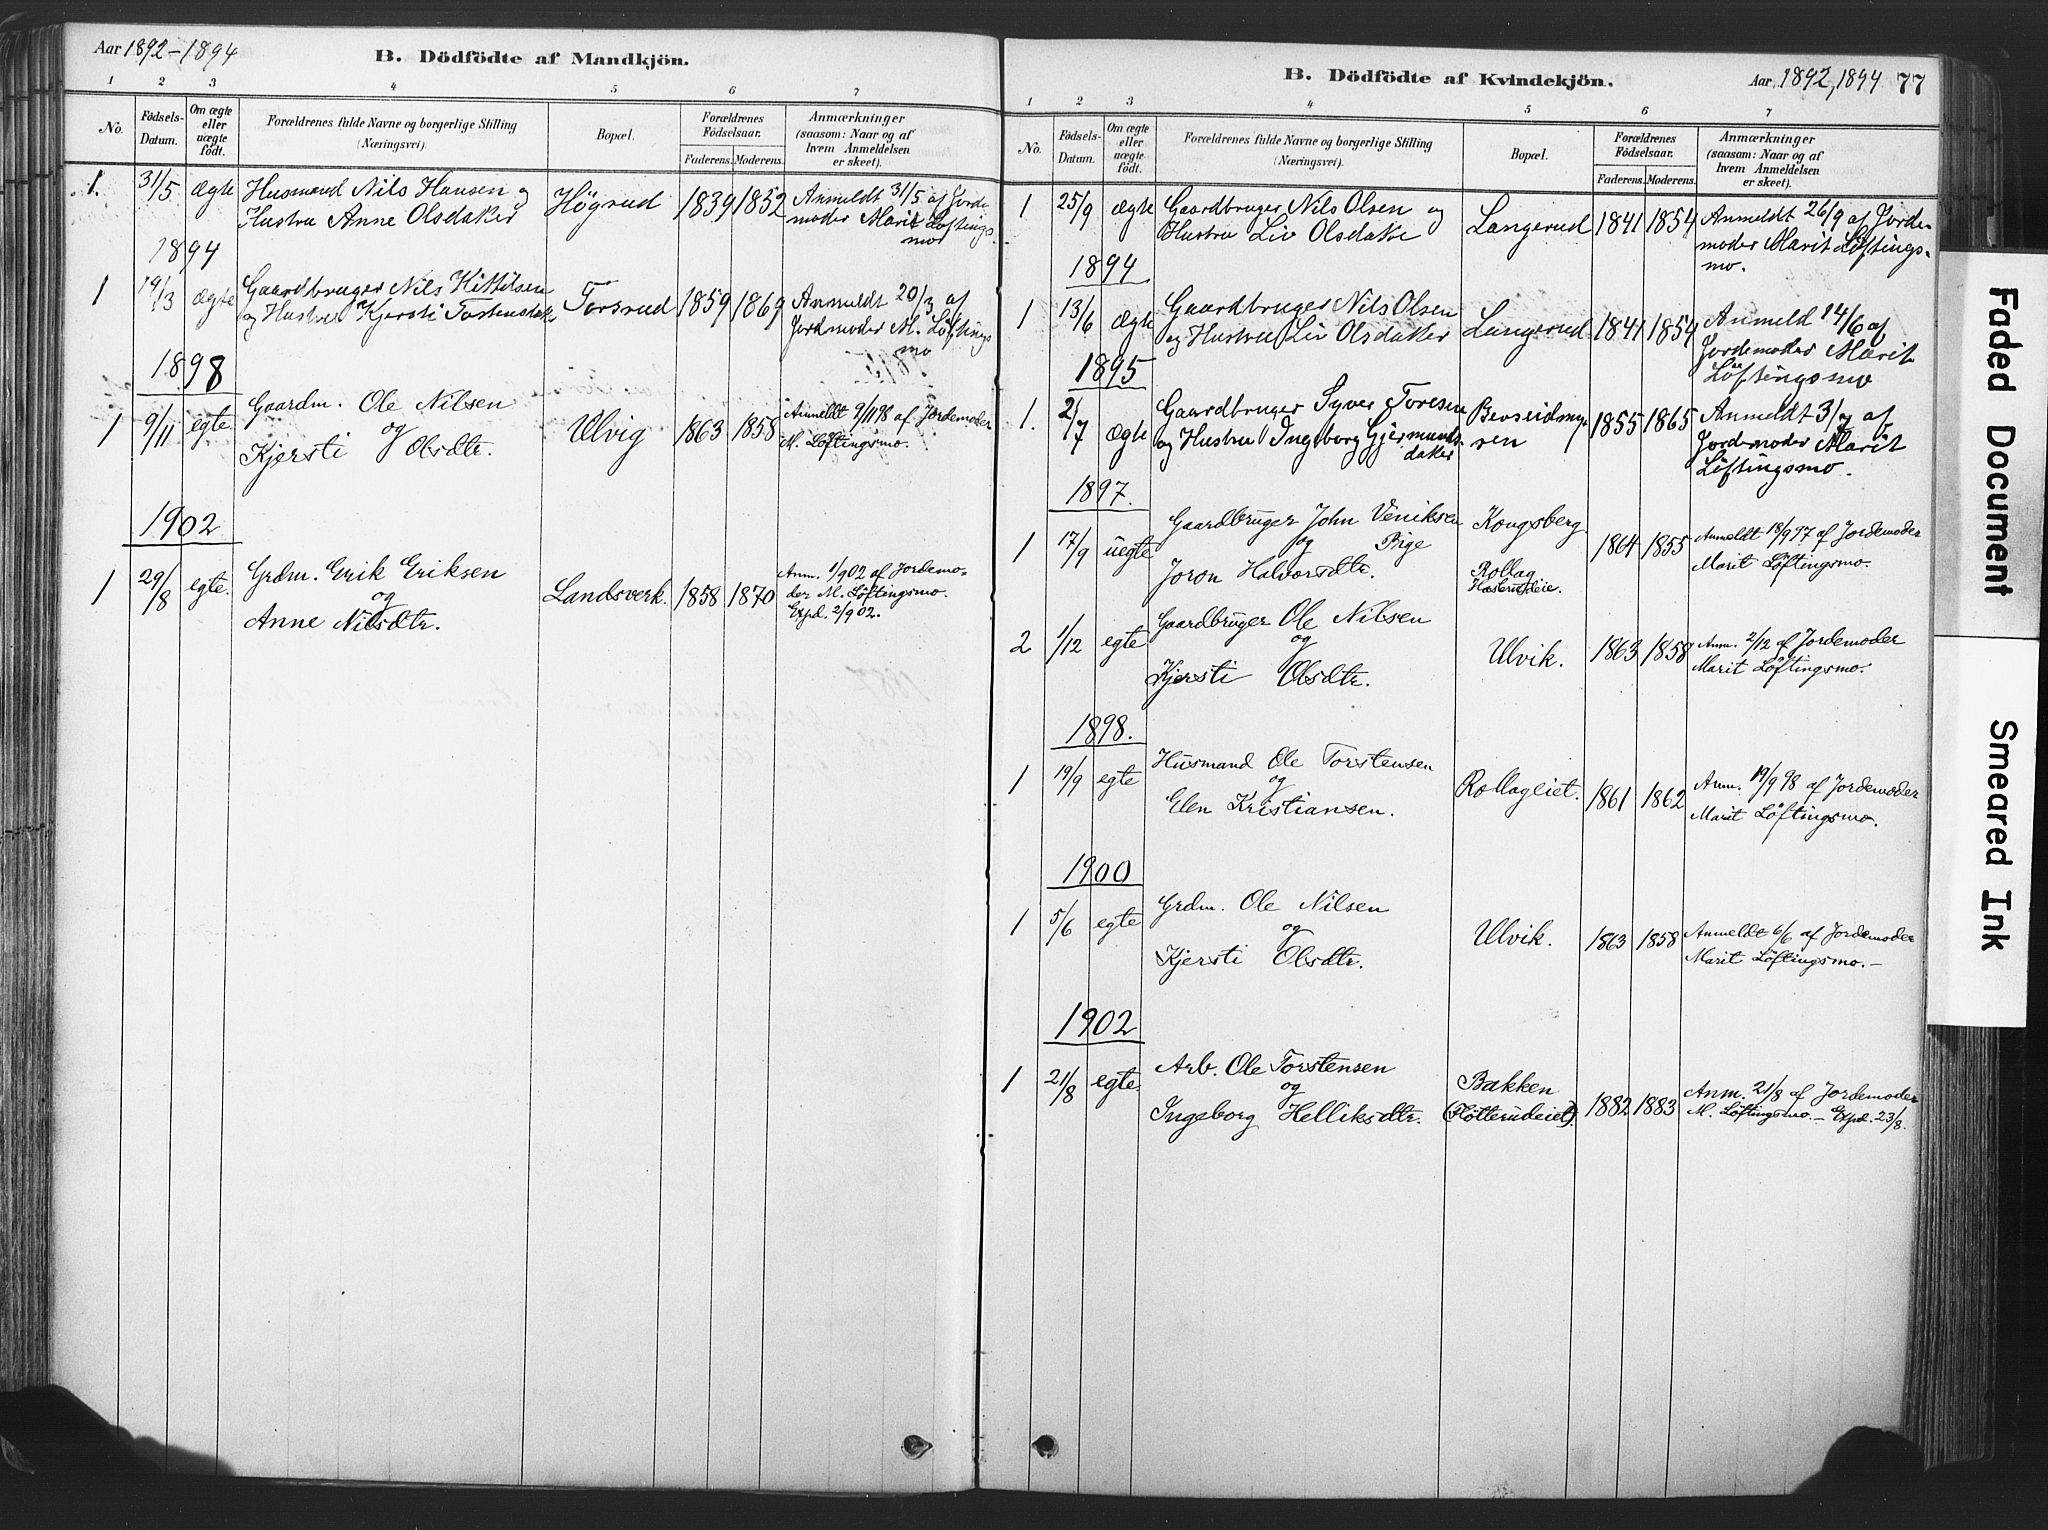 Aar 1892-1894
B. Dödfödte af Mandkjön.
1 2 3 4 5 6 7
No.
Födsels-Datum.
Om ægte eller uægte födt.
Forældrenes fulde Navne og borgerlige Stilling
(Næringsvei).
Bopæl.
Forældrenes Födselsaar.
Faderens. Moderens.
Anmærkninger
(saasom: Naar og af
hvem Anmeldelsen
er skeet).
1. 31/5 Ægte Husmand Nils Hansen og Högrud 1839 1852 Anmeldt 31/5 af Jorde-
Hustru Anne Olsdatter moder Marit Löftings-
mo
1894
1 19/3 Ægte Gaardbruger Nils Kittilsen Torsrud 1859 1869 Anmeldt 20/3 af
og Hustru Kjersti Torstensdatter Jordmoder M. Löftings
mo
1898
1 9/11 egte Gaardm. Ole Nilsen Ulvig 1863 1858 Anmeldt 9/11 98 af Jordemoder
og M. Löftingsmo.
Kjersti Olsdtr.
1902
1 29/8 egte. Grdm. Erik Eriksen Landsverk. 1858 1870 Anm. 1/9 02 af Jordemo-
og der M. Löftingsmo.
Anne Nilsdtr. Expd. 2/9 02.
B. Dödfödte af Kvindekjön.
Aar 1892, 1894 77
1 2 3 4 5 6 7
No.
Födsels-Datum.
Om ægte eller uægte födt.
Forældrenes fulde Navne og borgerlige Stilling
(Næringsvei).
Bopæl.
Forældrenes Födselsaar.
Faderens. Moderens.
Anmærkninger
(saasom: Naar og af
hvem Anmeldelsen
er skeet).
1 25/9 Ægte Gaardbruger Nils Olsen og Langerud 1841 1854 Anmeldt 26/9 af Jorde-
Hustru Liv Olsdatter moder Marit Löftings-
mo.
1894
1 13/6 Ægte Gaardbruger Nils Olsen Langerud 1841 1854 Anmeld 14/6 af
og Hustru Liv Olsdatter Jordemoder Marit
Löftingsmo
1895
1. 2/7 Ægte Gaardbruger Syver Toresen 1855 1865 Anmeldt 3/7 af
og Hustru Ingeborg Gjermunds- Jordemoder Marit
datter Löftingsmo.
1897.
1 17/9 uegte Gaardbruger John Kongsberg 1864 1855 Anmeldt 18/9 97 af Jordemoder
og Pige Rollag Marit Löftingsmo.
Joron Halvorsdtr.
2 1/12 egte Gaardbruger Ole Nilsen Ulvik. 1863 1858 Anm. 2/12 af Jordemoder
og Marit Löftingsmo.
Kjersti Olsdtr.
1898.
1 19/9 egte Husmand Ole Torstensen Rollageiet. 1861 1862 Anm. 19/9 98 af Jordemoder
og Marit Löftingsmo.
Elen Kristiansen.
1900
1 5/6 egte Grdm. Ole Nilsen Ulvik. 1863 1858 Anmeldt 6/6 af Jordemoder
og Marit Löftingsmo.-
Kjersti Olsdtr.
1902
1 21/8 egte. Arb. Ole Torstensen Bakken 1882 1883 Anm. 21/8 af Jordemoder
og (Fløtterudeiet). M. Löftingsmo.- Expd. 23/8.
Ingeborg Helliksdtr.
Faded Document
Smeared Ink